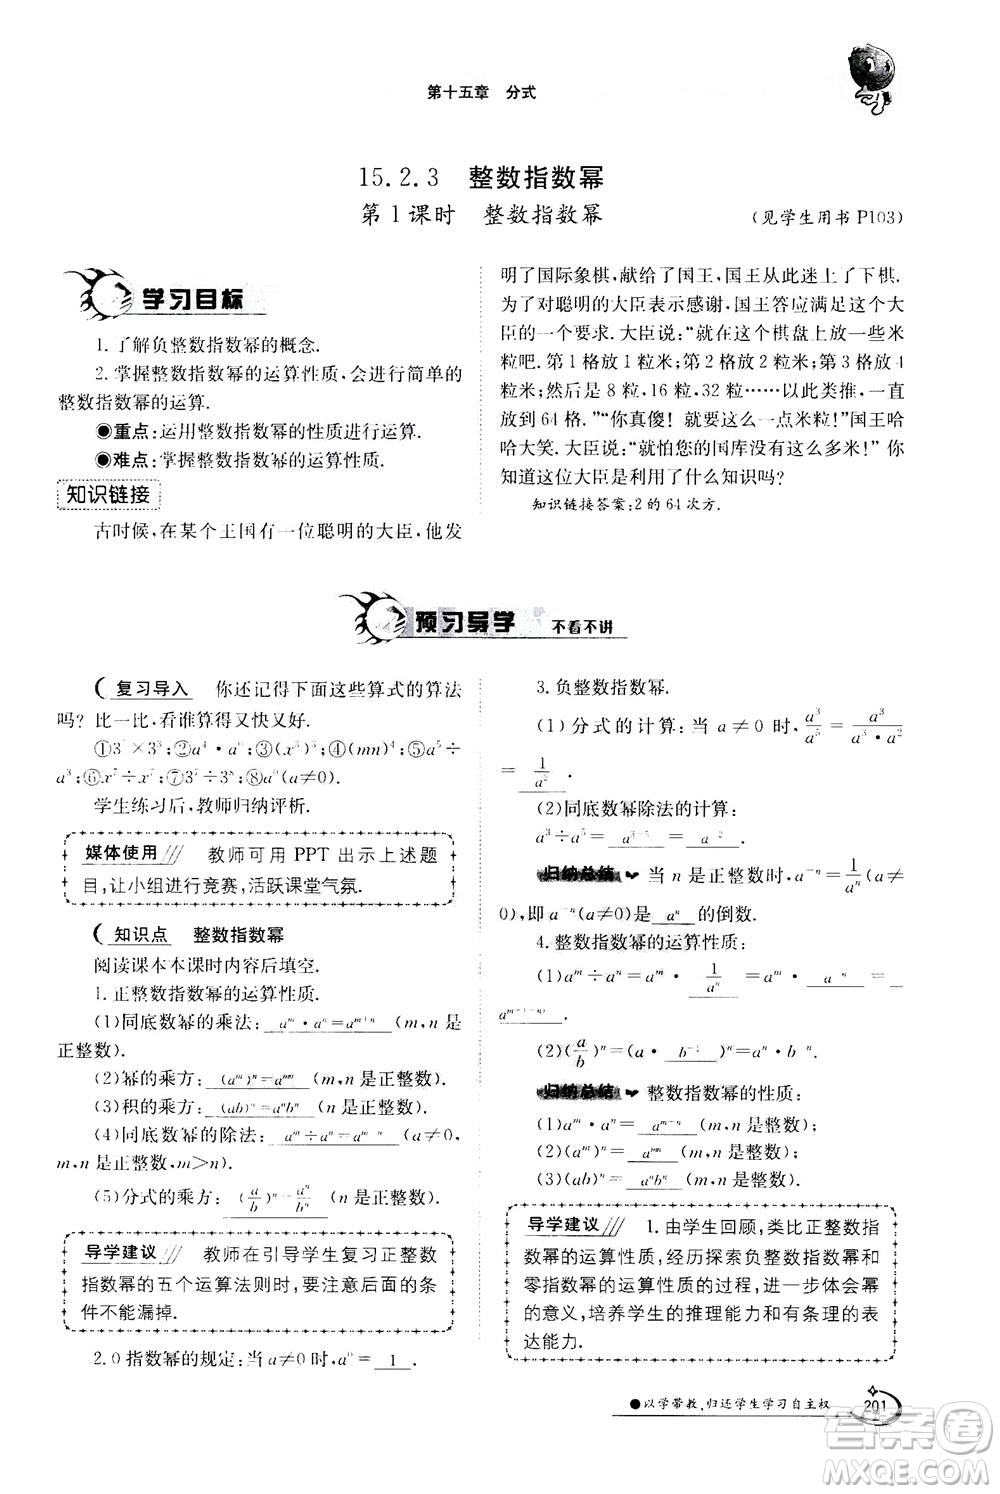 第十五章 分式
15.2.3 整数指数幂
第1课时 整数指数幂
(见学生用书 P103)
学习目标
1.了解负整数指数幂的概念.
2.掌握整数指数幂的运算性质,会进行简单的
整数指数幂的运算.
●重点:运用整数指数幂的性质进行运算.
●难点:掌握整数指数幂的运算性质.
知识链接
古时候,在某个王国有一位聪明的大臣,他发
明了国际象棋,献给了国王,国王从此迷上了下棋.
为了对聪明的大臣表示感谢,国王答应满足这个大
臣的一个要求.大臣说:“就在这个棋盘上放一些米
粒吧.第1格放1粒米;第2格放2粒米;第3格放4
粒米;然后是8粒,16粒,32粒……以此类推,一直
放到64格.”“你真傻!就要这么一点米粒!”国王哈
哈大笑.大臣说:“就怕您的国库没有这么多米!”你
知道这位大臣是利用了什么知识吗?
知识链接答案:2的64次方.
预习导学 不看不讲
复习导入 你还记得下面这些算式的算法
吗?比一比,看谁算得又快又好.
④(mn)⁴;⑤a⁵÷
(a≠0).
学生练习后,教师归纳评析.
媒体使用 教师可用PPT出示上述题
目,让小组进行竞赛,活跃课堂气氛.
知识点 整数指数幂
阅读课本本课时内容后填空.
1.正整数指数幂的运算性质.
(1)同底数幂的乘法: aᵐ·aⁿ=aᵐ⁺ⁿ (m,n是
正整数).
(2)幂的乘方: (aᵐ)ⁿ=aᵐⁿ (m,n是正整数).
(3)积的乘方: (ab)ⁿ=aⁿbⁿ (n是正整数).
(4)同底数幂的除法: aᵐ÷aⁿ=aᵐ⁻ⁿ (a≠0,
m,n是正整数,m>n).
(5)分式的乘方: (a/b)ⁿ=aⁿ/bⁿ (n是正整数).
导学建议 教师在引导学生复习正整数
指数幂的五个运算法则时,要注意后面的条
件不能漏掉.
2.0指数幂的规定:当a≠0时,a⁰= 1 .
3.负整数指数幂.
(1)分式的计算:当a≠0时,a³/a⁵=a³/(a³·a²)
= 1/a² .
(2)同底数幂除法的计算:
a³÷a⁵= a³⁻⁵ = a⁻² .
归纳总结 当n是正整数时,a⁻ⁿ=1/aⁿ(a≠
0),即a⁻ⁿ(a≠0)是 aⁿ 的倒数.
4.整数指数幂的运算性质:
(1)aᵐ÷aⁿ=aᵐ· 1/aⁿ =aᵐ· a⁻ⁿ =
aᵐ⁺⁽⁻ⁿ⁾ .
(2)(a/b)ⁿ=(a· b⁻¹ )ⁿ= aⁿb⁻ⁿ .
归纳总结 整数指数幂的性质:
(1)aᵐ·aⁿ= aᵐ⁺ⁿ (m,n是整数);
(2)(aᵐ)ⁿ= aᵐⁿ (m,n是整数);
(3)(ab)ⁿ= aⁿbⁿ (n是整数).
导学建议 1.由学生回顾,类比正整数指
数幂的运算性质,经历探索负整数指数幂和
零指数幂的运算性质的过程,进一步体会幂
的意义,培养学生的推理能力和有条理的表
达能力.
●以学带教,归还学生学习自主权
201
答案圈
MXQE.COM